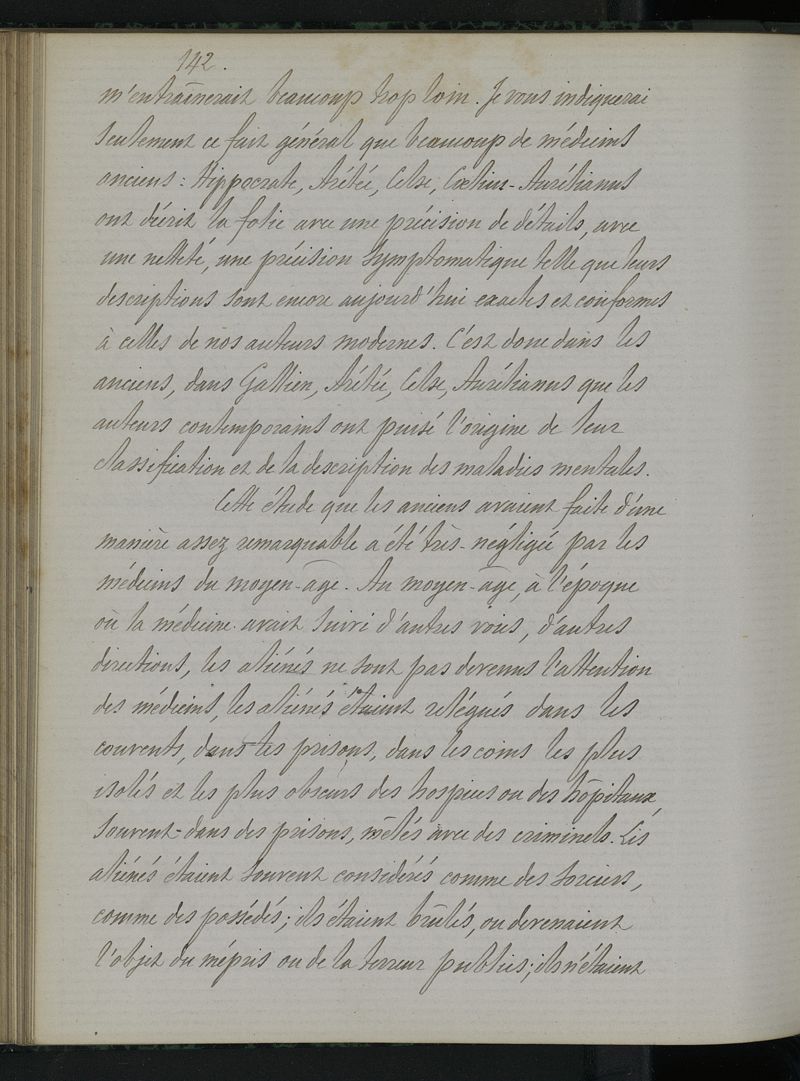 142.
m'entraînerait beaucoup trop loin. Je vous indiquerai
seulement ce fait général que beaucoup de médecins
anciens : Hippocrate, Arétée, Celse, Cœlius-Aurélianus
ont décrit la folie avec une précision de détails, avec
une netteté, une précision symptomatique telle que leurs
descriptions sont encore aujourd'hui exactes et conformes
à celles de nos auteurs modernes. C'est donc dans les
anciens, dans Gallien, Arétée, Celse, Aurélianus que les
auteurs contemporains ont puisé l'origine de leur
classification et de la description des maladies mentales.
Cette étude que les anciens avaient faite d'une
manière assez remarquable a été très-négligée par les
médecins du moyen-âge. Au moyen-âge, à l'époque
où la médecine avait suivi d'autres voies, d'autres
directions, les aliénés ne sont pas devenus l'attention
des médecins, les aliénés étaient relégués dans les
couvents, dans les prisons, dans les coins les plus
isolés et les plus obscurs des hospices ou des hôpitaux,
souvent dans des prisons, mêlés avec des criminels. Les
aliénés étaient souvent considérés comme des sorciers,
comme des possédés; ils étaient brûlés, ou devenaient
l'objet du mépris ou de la terreur publics; ils n'étaient